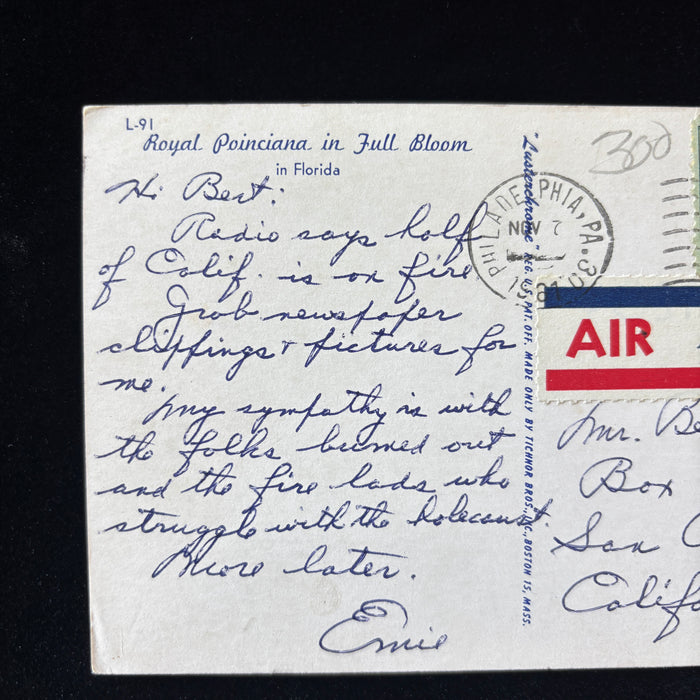 L-91
Royal Poinciana in Full Bloom
in Florida
Hi Bert:
Radio says half
of Calif. is on fire
Grab newspaper
clippings + pictures for
me.
My sympathy is with
the folks burned out
and the fire lads who
struggle with the holocaust.
More later.
Ernie
"Lusterchrome" REG. U.S. PAT. OFF. MADE ONLY BY TICHNOR BROS., INC., BOSTON 15, MASS.
300
PHILADELPHIA, PA. 30
NOV 7
AIR
Mr. Be
Box
San
Calif